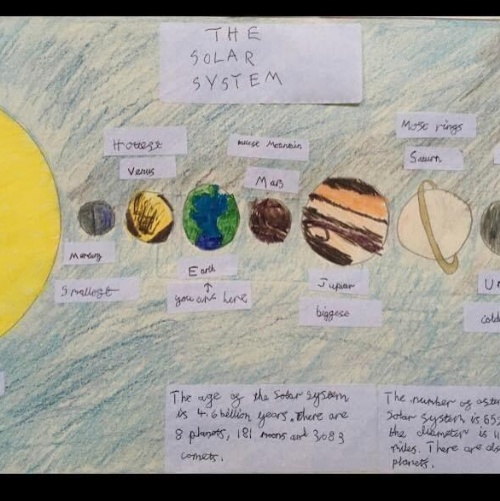 THE
SOLAR
SYSTEM
Hottest
Venus
Mars
Most rings
Saturn
Mercury
Smallest
Earth
↑
you are here
Jupiter
biggest
U
cold
The age of the Solar System
is 4.6 billion years. There are
8 planets, 181 moons and 3083
comets.
The number of aste
Solar system is 652
the diameter is
miles. There are
planets.